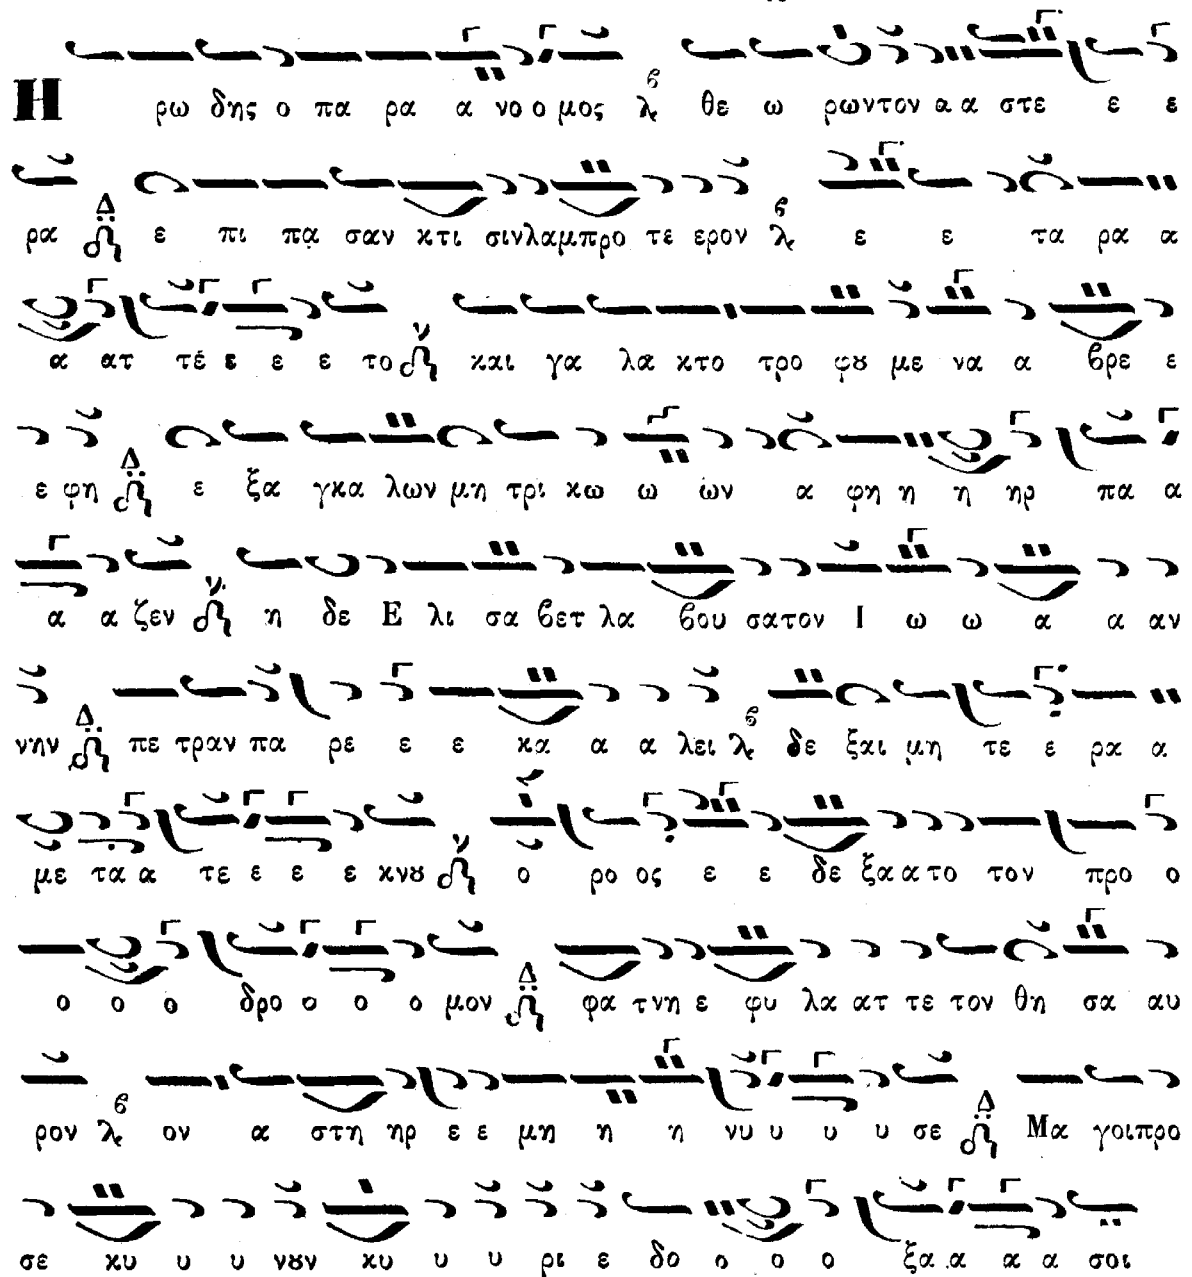 Η ρω δης ο πα ρα α νο ο μος θε ω ρωντον α α στε ε ε
ρα ε πι πα σαν κτι σινλαμπρο τε ερον ε ε τα ρα α
α ατ τέ ε ε ε το και γα λα κτο τρο φȣ με να α βρε ε
ε φη ε ξα γκα λων μη τρι κω ω ων α φη η η ηρ πα α
α α ζεν η δε Ε λι σα βετ λα βου σατον Ι ω ω α α αν
νην πε τραν πα ρε ε ε κα α α λει δε ξαι μη τε ε ρα α
με τα α τε ε ε ε κνȣ ο ρο ος ε ε δε ξα α το τον προ ο
ο ο ο δρο ο ο ο μον φα τνη ε φυ λα ατ τε τον θη σα αυ
ρον ον α στη ηρ ε ε μη η η νυ υ υ υ σε Μα γοιπρο
σε κυ υ υ νȣν κυ υ υ ρι ε δο ο ο ο ξα α α α σοι